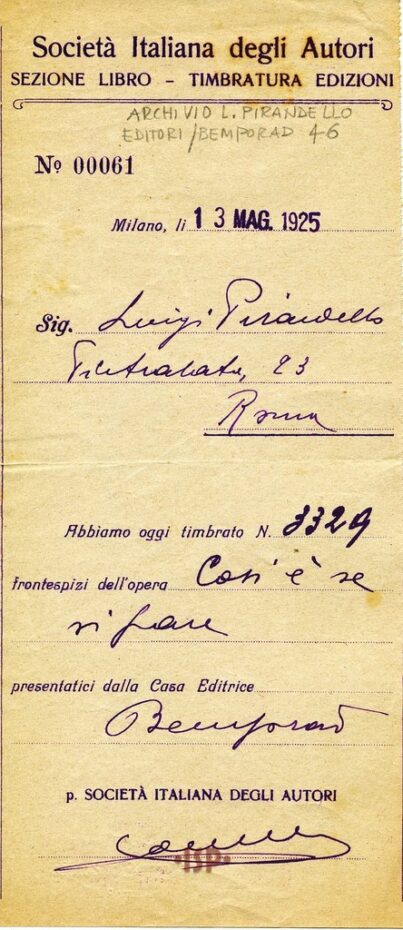 Società Italiana degli Autori
SEZIONE LIBRO – TIMBRATURA EDIZIONI
ARCHIVIO L. PIRANDELLO
EDITORI/BEMPORAD 46
Nº 00061
Milano, li 13 MAG. 1925
Sig. Luigi Pirandello
Pietralata, 23
Roma
Abbiamo oggi timbrato N. 3329
frontespizi dell'opera Così è se
vi pare
presentatici dalla Casa Editrice
Bemporad
p. SOCIETÀ ITALIANA DEGLI AUTORI